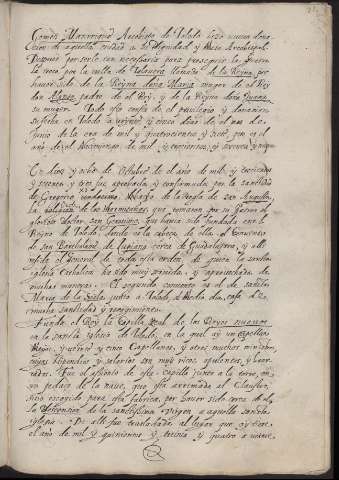 Gomez Manrrique Arcobispo de Toledo hizo nueva dona
cion de aquella ciudad a su Dignidad y Mesa Archiepil.
Despues por serle tan necessaria para proseguir la guerra
la troco por la villa de Talavera llamada de la Reyna por
haver sido de la Reyna doña Maria muger de el Rey
don Alonso padre de el Rey y de la Reyna doña Juana
su muger. Todo esto consta de el privilegio y donacion
su fecha en Toledo a veynte y cinco dias de el mes de
Junio de la era de mil y quatrocientos y siete, que es el
año de el Nacimiento de mil y trecientos y sesenta y nueve
En diez y ocho de Octubre de el año de mil y trecientos
y setenta y tres fue aprobada y confirmada por la santidad
de Gregorio undecimo debaxo de la Regla de san Augustin
la religion de los Hermitaños, que tomaron por su patron al
glorioso doctor san Geronimo, que havia sido fundada en el
Reyno de Toledo, donde es la cabeça de ella, el Convento
de san Bartolome de Lupiana cerca de Guadalajara, y alli
reside el General de toda esta orden, de quien la santa
iglesia Catholica ha sido muy servida, y aprovechada de
muchas maneras. El segundo convento es el de santa
Maria de la Sisla junto a Toledo, de dicho dia, casa de
mucha santidad y recogimiento.
Fundo el Rey la Capilla Real de los Reyes nuevos
en la santa iglesia de Toledo, en la qual ay un Capellan
Mayor, y veinte y cinco Capellanes, y otros muchos ministros,
cuyos stipendios y salarios son muy ricos, opulentos, y honr
rados. Fue el assiento de esta capilla junto a la torre, en
un pedaço de la nave, que esta arrimada al Claustro,
sitio escogido para esta fabrica, por haver sido cerca de alli
la Descension de la santissima Virgen a aquella sancta
iglesia. De alli fue trasladada al lugar que oy tiene
el año de mil y quinientos y treinta y quatro a nueve